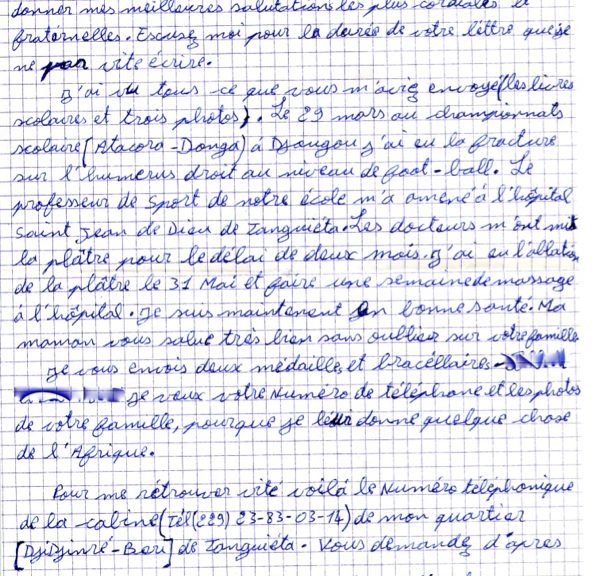 donner mes meilleures salutations les plus cordiales et
fraternelles. Escusez moi pour la durée de votre lettre que je
ne vite écrire.
J'ai vu tous ce que vous m'aviez envoyé (les livres
scolaires et trois photos). Le 29 mars au championnats
scolaire [Atacora-Donga) à Djougou j'ai eu la fracture
sur l'humerus droit au niveau de foot-ball. Le
professeur de Sport de notre école m'a amené à l'hôpital
Saint Jean de Dieu de Tanguiéta. Les docteurs m'ont mit
la plâtre pour le délai de deux mois. J'ai eu l'ablation
de la plâtre le 31 Mai et faire une semaine de massage
à l'hôpital. Je suis maintenant en bonne santé. Ma
maman vous salue très bien sans oublier sur votre famille
Je vous envois deux médailles et bracéllaires
Je veux votre Numéro de téléphone et les photos
de votre famille, pourque je leur donne quelque chose
de l'Afrique.
Pour me rétrouver vité voilà le Numéro télephonique
de la cabine (Tél (229) 23-83-03-14) de mon quartier
[Djidjinré-Beri] de Tanguiéta. Vous demandez d'apres